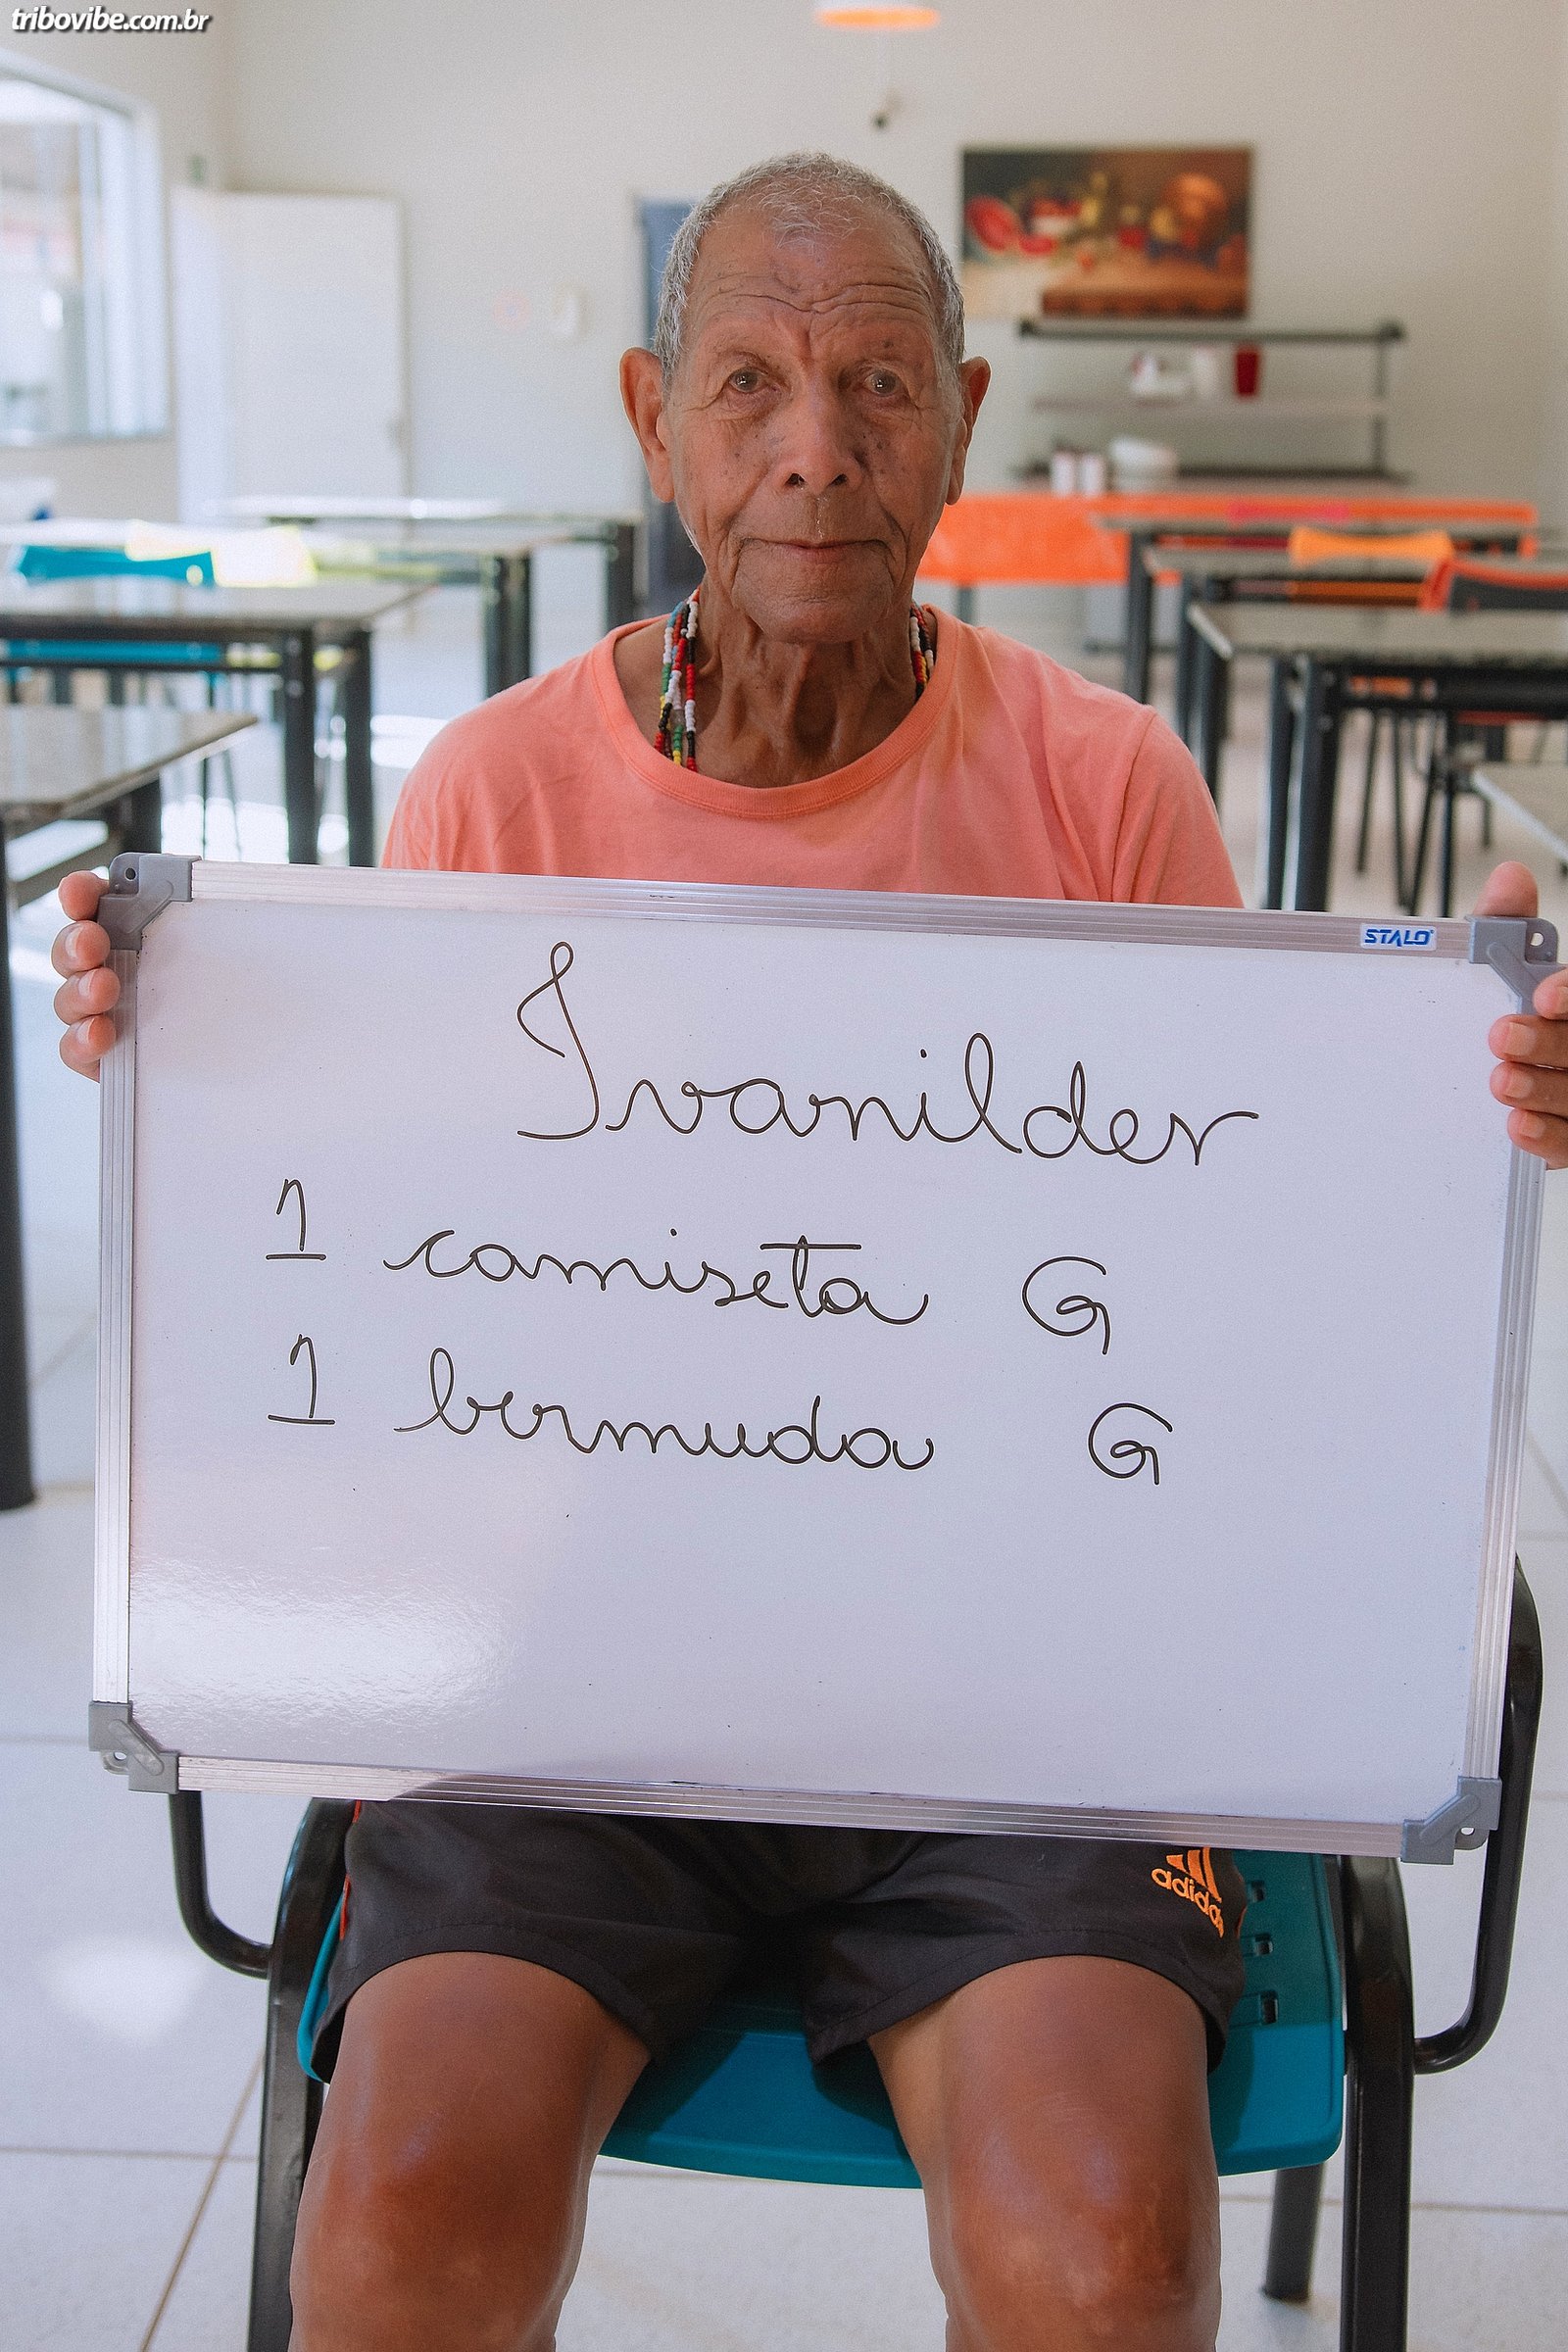 tribovibe.com.br
STALO
Ivanilder
1 camiseta G
1 bermuda G
adidas